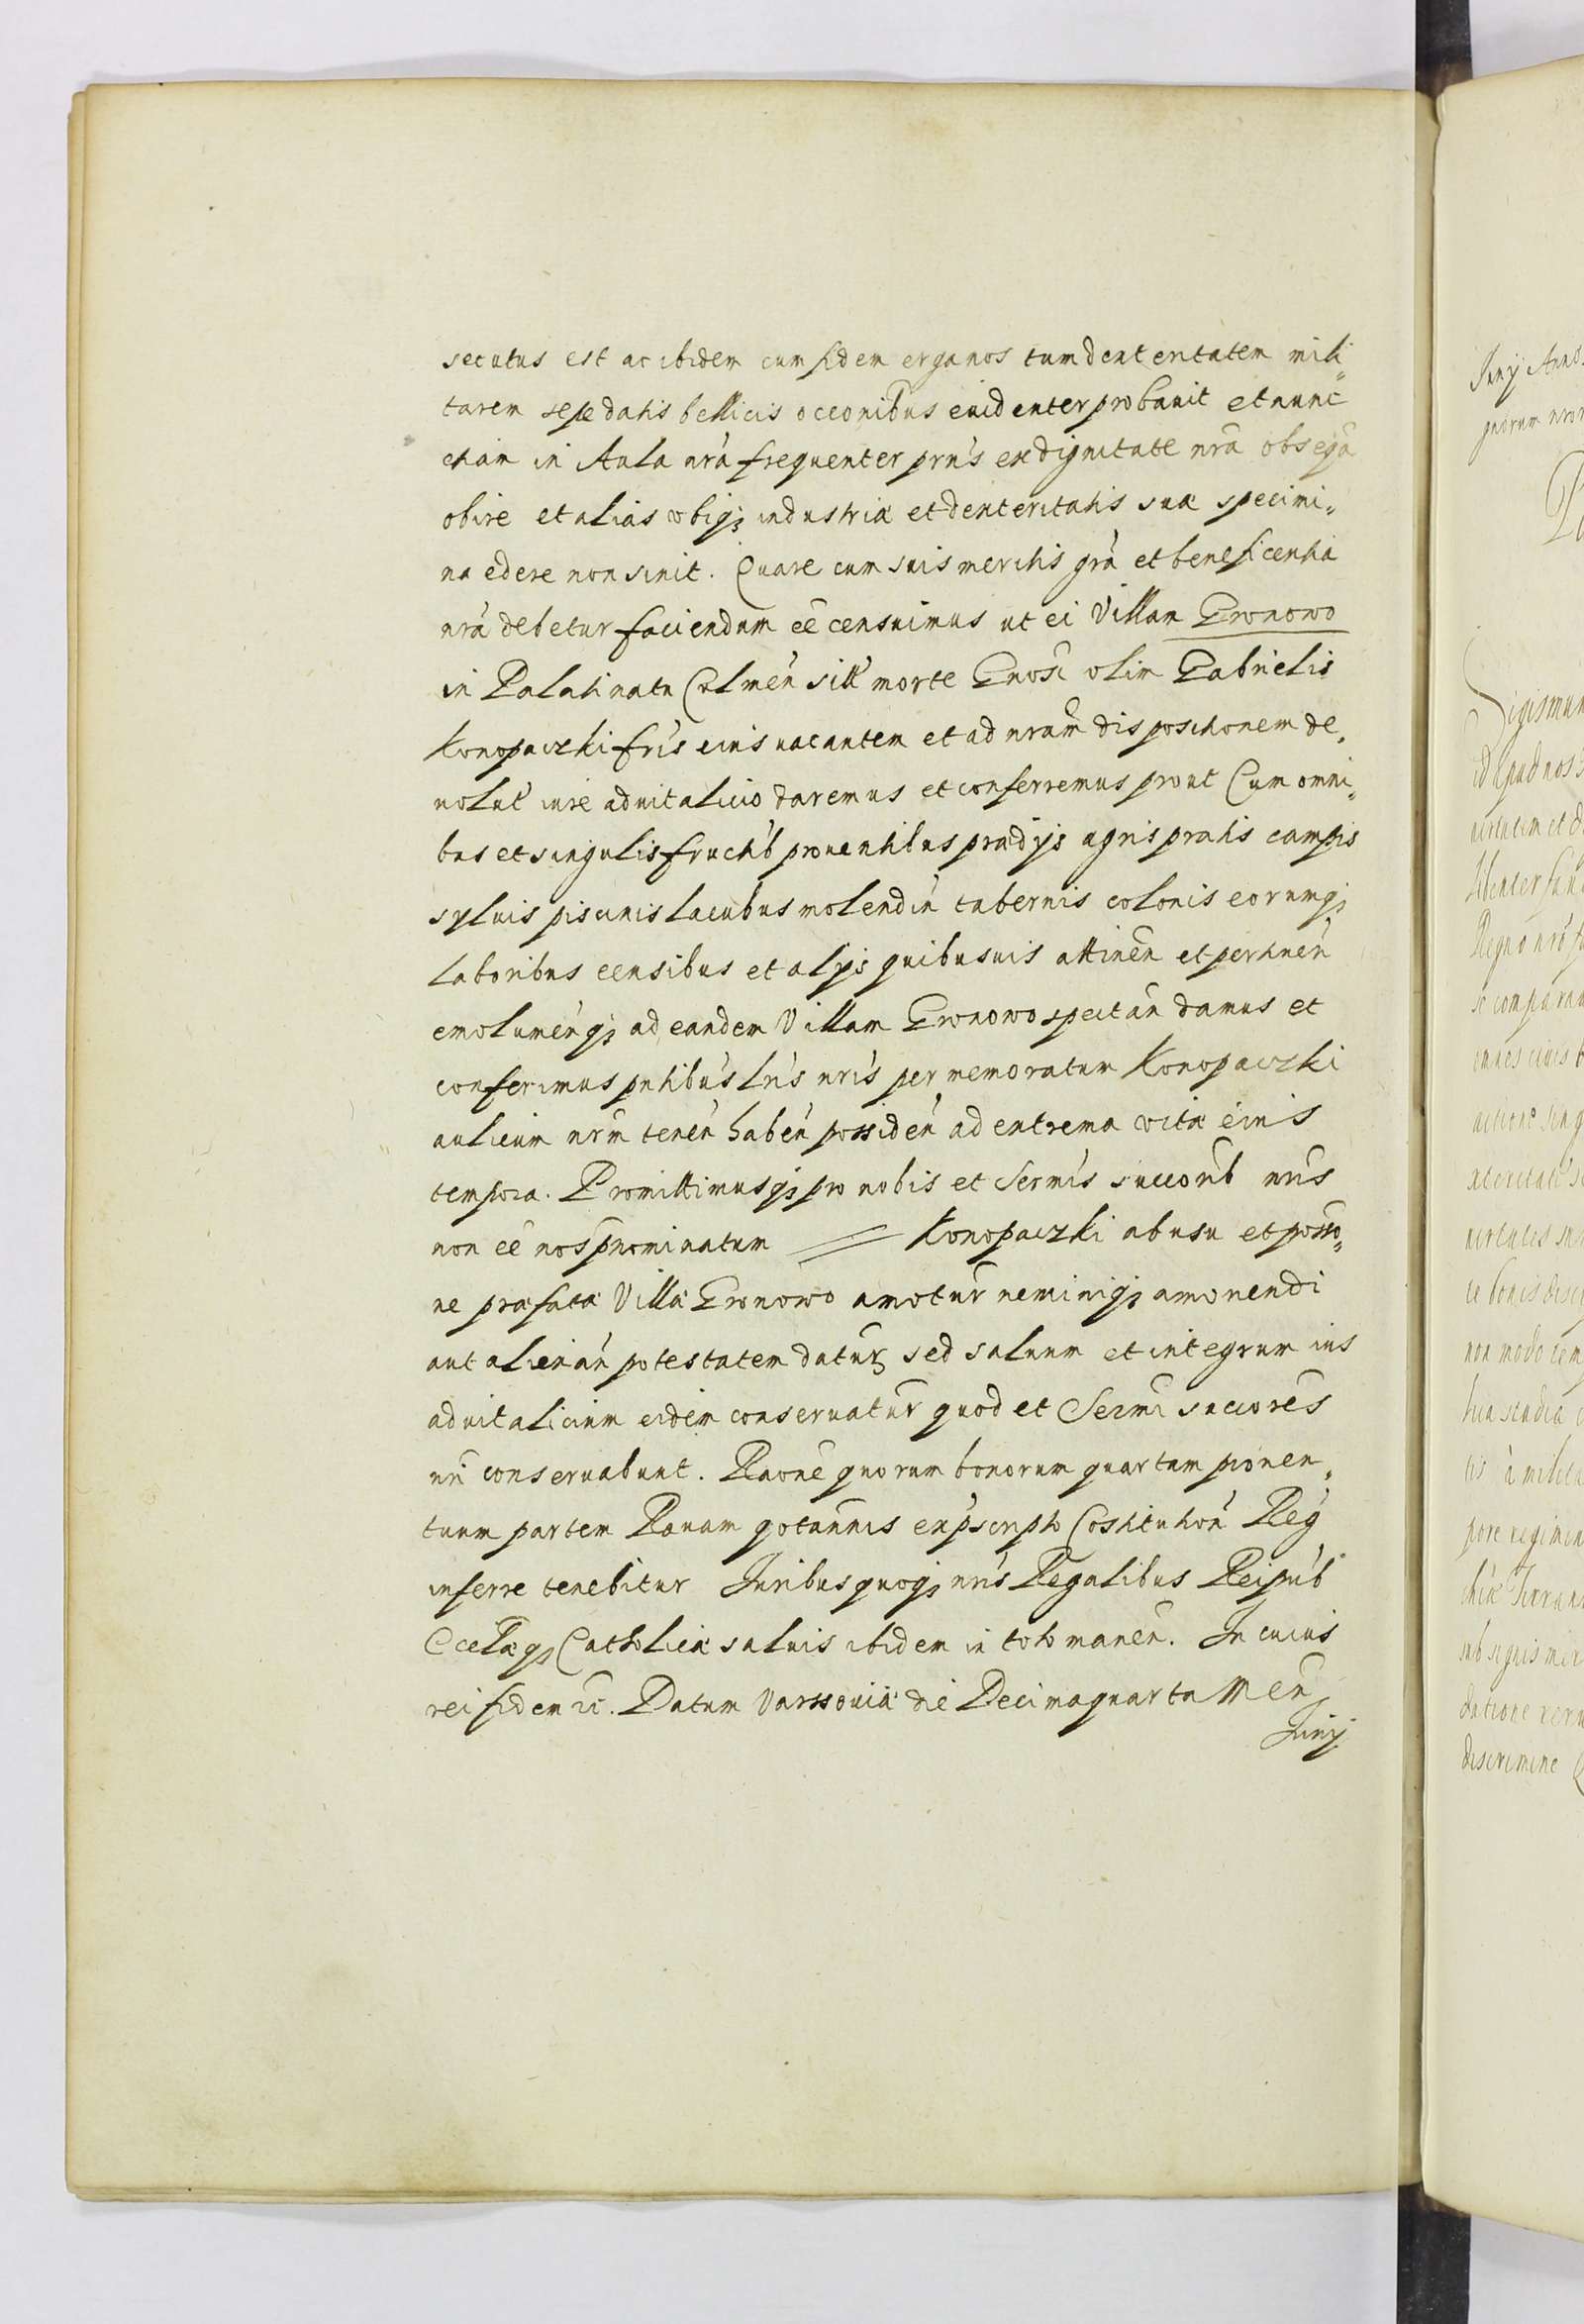 secutus est ac ibidem cum fidem erga nos tum dexteritatem mili„
tarem sese datis bellicis occōnibus euidenter probauit et nunc
etiam in Aula nrā frequenter prn̄s ex dignitate nrā obseqā
obire et alias vbiq; industriæ et dexteritatis suæ specimi„
na edere non sinit. Quare cum suis meritis grā et beneficentia
nrā debetur faciendum eē censuimus ut ei Villam Gronowo
in Palatinatu Culmēn sitt̄ morte Gnōsi olim Gabrielis
Konopaczki frīs eius uacantem et ad nram̄ dispositionem de„
uolut̄ iure aduitalicio daremus et conferremus prout Cum omni„
bus et singulis fructib̄ prouentibus prædijs agris pratis campis
syluis piscinis lacubus molendiñ tabernis colonis eorumq;
laboribus censibus et alijs quibusuis attinēn et pertinēn
emolumenq; ad eandem Villam Gronowo spectān damus et
conferimus pntibūs lrīs nrīs per memoratum Konopaczki
aulicum nrm̄ tenēn habēn possidēn ad extrema vitæ eius
tempora. Promittimusq; pro nobis et Sermīs succorib̄ nrīs
non eē nos pnominatum = Konopaczki ab usu et possō„
ne præfatæ Villæ Gronowo amotur̄ neminiq; amouendi
aut alienān potestatem datur̄ sed saluum et integrum ius
aduitalicium eidem conseruatur̄ quod et Sermī succorēs
nrī conseruabunt. Raōnē quorum bonorum quartam prouen„
tuum partem Rauam qotannis ex pscripto Cōstitutiōn Reg̃
inferre tenebitur Juribus quoq; nrīs Regalibus Reipub̄
Ecclæq; Catholicæ saluis ibidem in toto manēn. In cuius
rei fidem ꝛc̄. Datum Varssouiæ die Decimaquarta Mēn
Junij